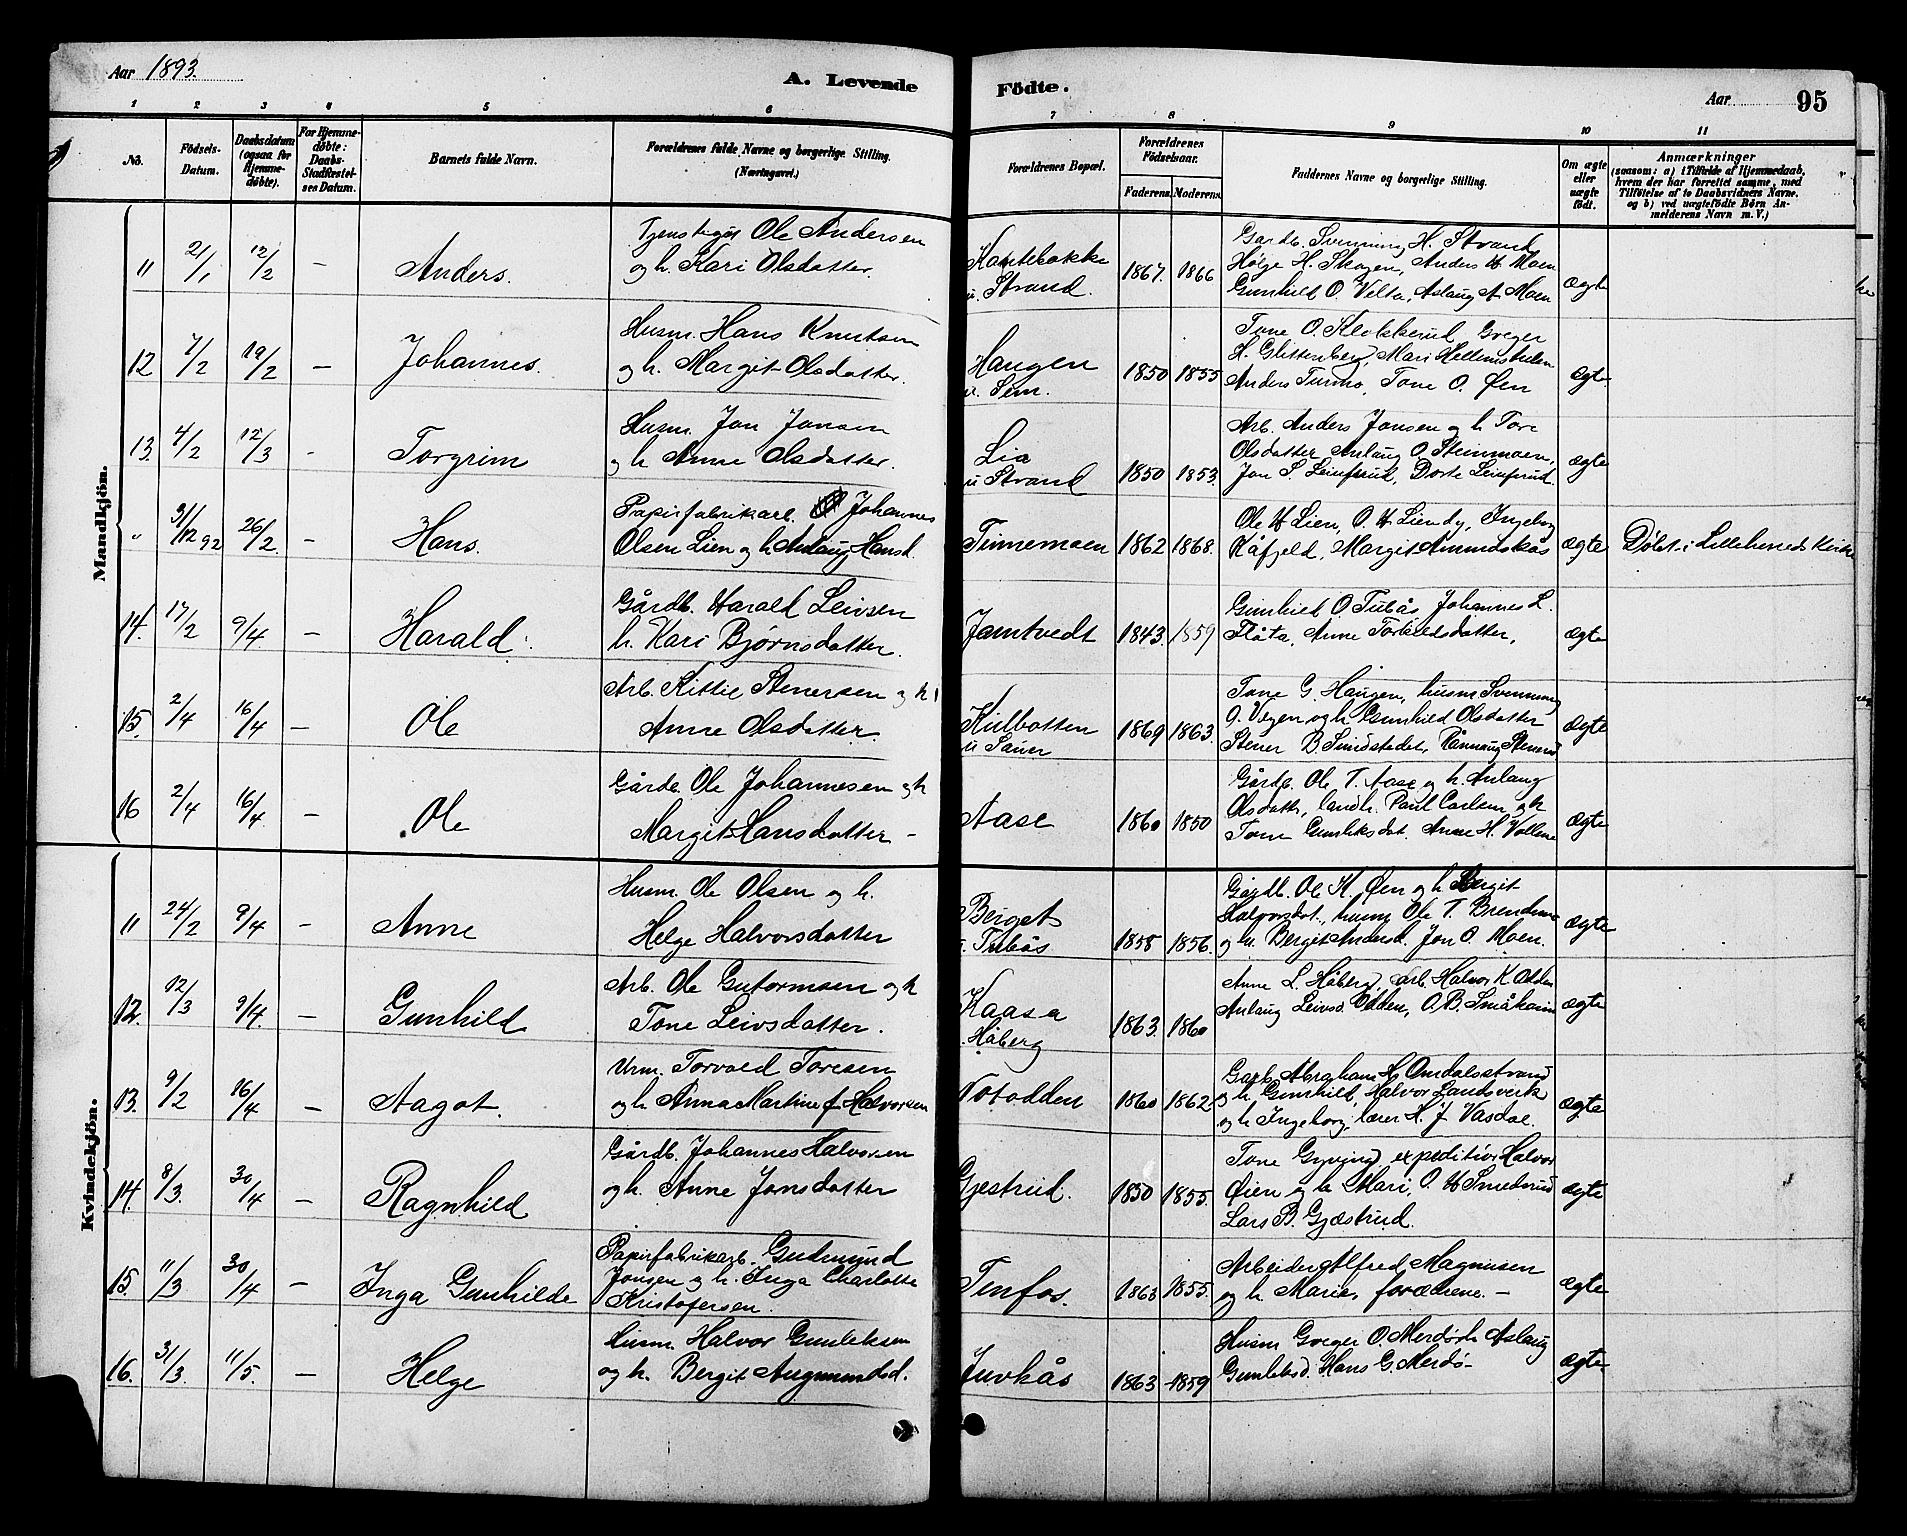 Aar 1893.
A. Levende Födte.
Aar 95
1 2 3 4 5 6 7 8 9 10 11
No. Födsels-Datum. Daabsdatum (ogsaa for Hjemmedøbte). For Hjemmedöbte: Daabs-Stadfæstelses Datum. Barnets fulde Navn. Forældrenes fulde Navne og borgerlige Stilling. (Næringsvei.) Forældrenes Bopæl. Forældrenes Födselsaar. Faderens. Moderens. Faddernes Navne og borgerlige Stilling. Om ægte eller uægte födt. Anmærkninger (saasom: a) i Tilfælde af Hjemmedaab, hvem der har forrettet samme, med Tilföielse af to Daabsvidners Navne. og b) ved uægtefödte Börn Anmelderens Navn m. V.)
Mandkjön.
11 21/1 12/2 – Anders. Ole Andersen og h. Kari Olsdatter. u. Strand. 1867. 1866 Gardb. Svenning H. Strand Helge H. Skogen, Anders H Moen Gunhild O. Velta, Aslaug A Moen ægte
12 7/2 19/2 – Johannes. Husm. Hans Knutsen og h. Margit Olsdatter. Haugen u. Sem. 1850 1855 Tone O. Stokkerud Greger H. Glittenberg, Mari Anders Turmo, Tone O. Øen ægte
13. 4/2 12/3 - Torgrim Husm. Jon Jonsen og h Anne Olsdatter. Lia u Strand 1850 1853. Arb. Anders Jonsen og h Tore Olsdatter Anlaug O Steinmoen, Jon S. Leinfrud, Dorte Leinfrud. ægte
" 31/12 92 26/2. – Hans. Papirfabrikarb. Johannes Olsen Lien og h. Anlaug Hansd. Tinnemoen 1862 1868. Ole H Lien, O. H Liendy, Ingebog Kåfjeld, Margit Amundskås ægte Døbt i Lilleherred Kirke
14. 17/2 9/4 – Harald. Gårdb. Harald Leivsen h. Kari Bjørnsdatter. Jamtvedt 1843. 1859 Gunhild O Tubås Johannes L. Flåta, Anne Torkildsdatter, ægte
15. 2/4 16/4 – Ole Arb. Kittil Stenersen og h Anne Olsdatter. Kulbotten u Sauer 1869 1863. Tone G. Haugen, husm Svenning O. Vegen og h. Gunhild Olsdatter Stener B. Sundstadet, Rannaug Stenersd ægte
16 2/4 16/4. – Ole Gårdb. Ole Johannesen og h Margit Hansdatter – Aase 1860 1850 Gårdb. Ole T. Aase og h. Anlaug Olsdatter, landh. Paul Carlsen og h Tone Gunleksdat. Anne H. Vollene ægte
Kvindekjön.
11 24/2 9/4 – Anne Husm. Ole Olsen og h. Helge Halvorsdatter Berget u. Tubås 1858 1856. Gårdb. Ole H. Øen og h Bergit Halvorsdat., husm Ole T. Brendemo og h. Bergit Andersd. Jon O. Moen. ægte
12. 12/3 9/4. – Gunhild Arb. Ole Gutormsen og h Tone Leivsdatter. Kaasa Håberg 1863. 1860 Anne L. Håberg, arb. Halvor K Odden Anlaug Leivsd. Odden, O. B. Småkasin ægte
13. 9/2 16/4 – Aagot. Urm. Torvald Toresen og h Anna Martine f. Halvorsen Notodden 1860 1862. Garb. Abraham H. Omdalsstrand og h. Gunhild, Halvor Landsverk og h Ingeborg, lærer H. J. Vasdal. ægte
14. 8/3. 30/4 – Ragnhild Gårdb. Johannes Halvorsen og h. Anne Jonsdatter Gjestrud. 1850 1855. Tone Gyving, expeditör Halvor Øien og h Mari, O. H Smedsrud Lars B. Gjæstrud. ægte
15. 11/3 30/4 – Inga Gunhilde Papirfabrikarb. Gudmund Jonsen og h. Inga Charlotte Kristofersen. Tinfos. 1863 1855. Arbeider Alfred Magnusen og h. Marie, forældrene. – ægte
16. 31/3. 11/5. – Helge Husm. Halvor Gunleksen og h. Bergit Augmundsd. Juvkås 1863 1859 Husm Greger O. Merdø h Aslaug Gunleksd. Hans G. Merdø– ægte